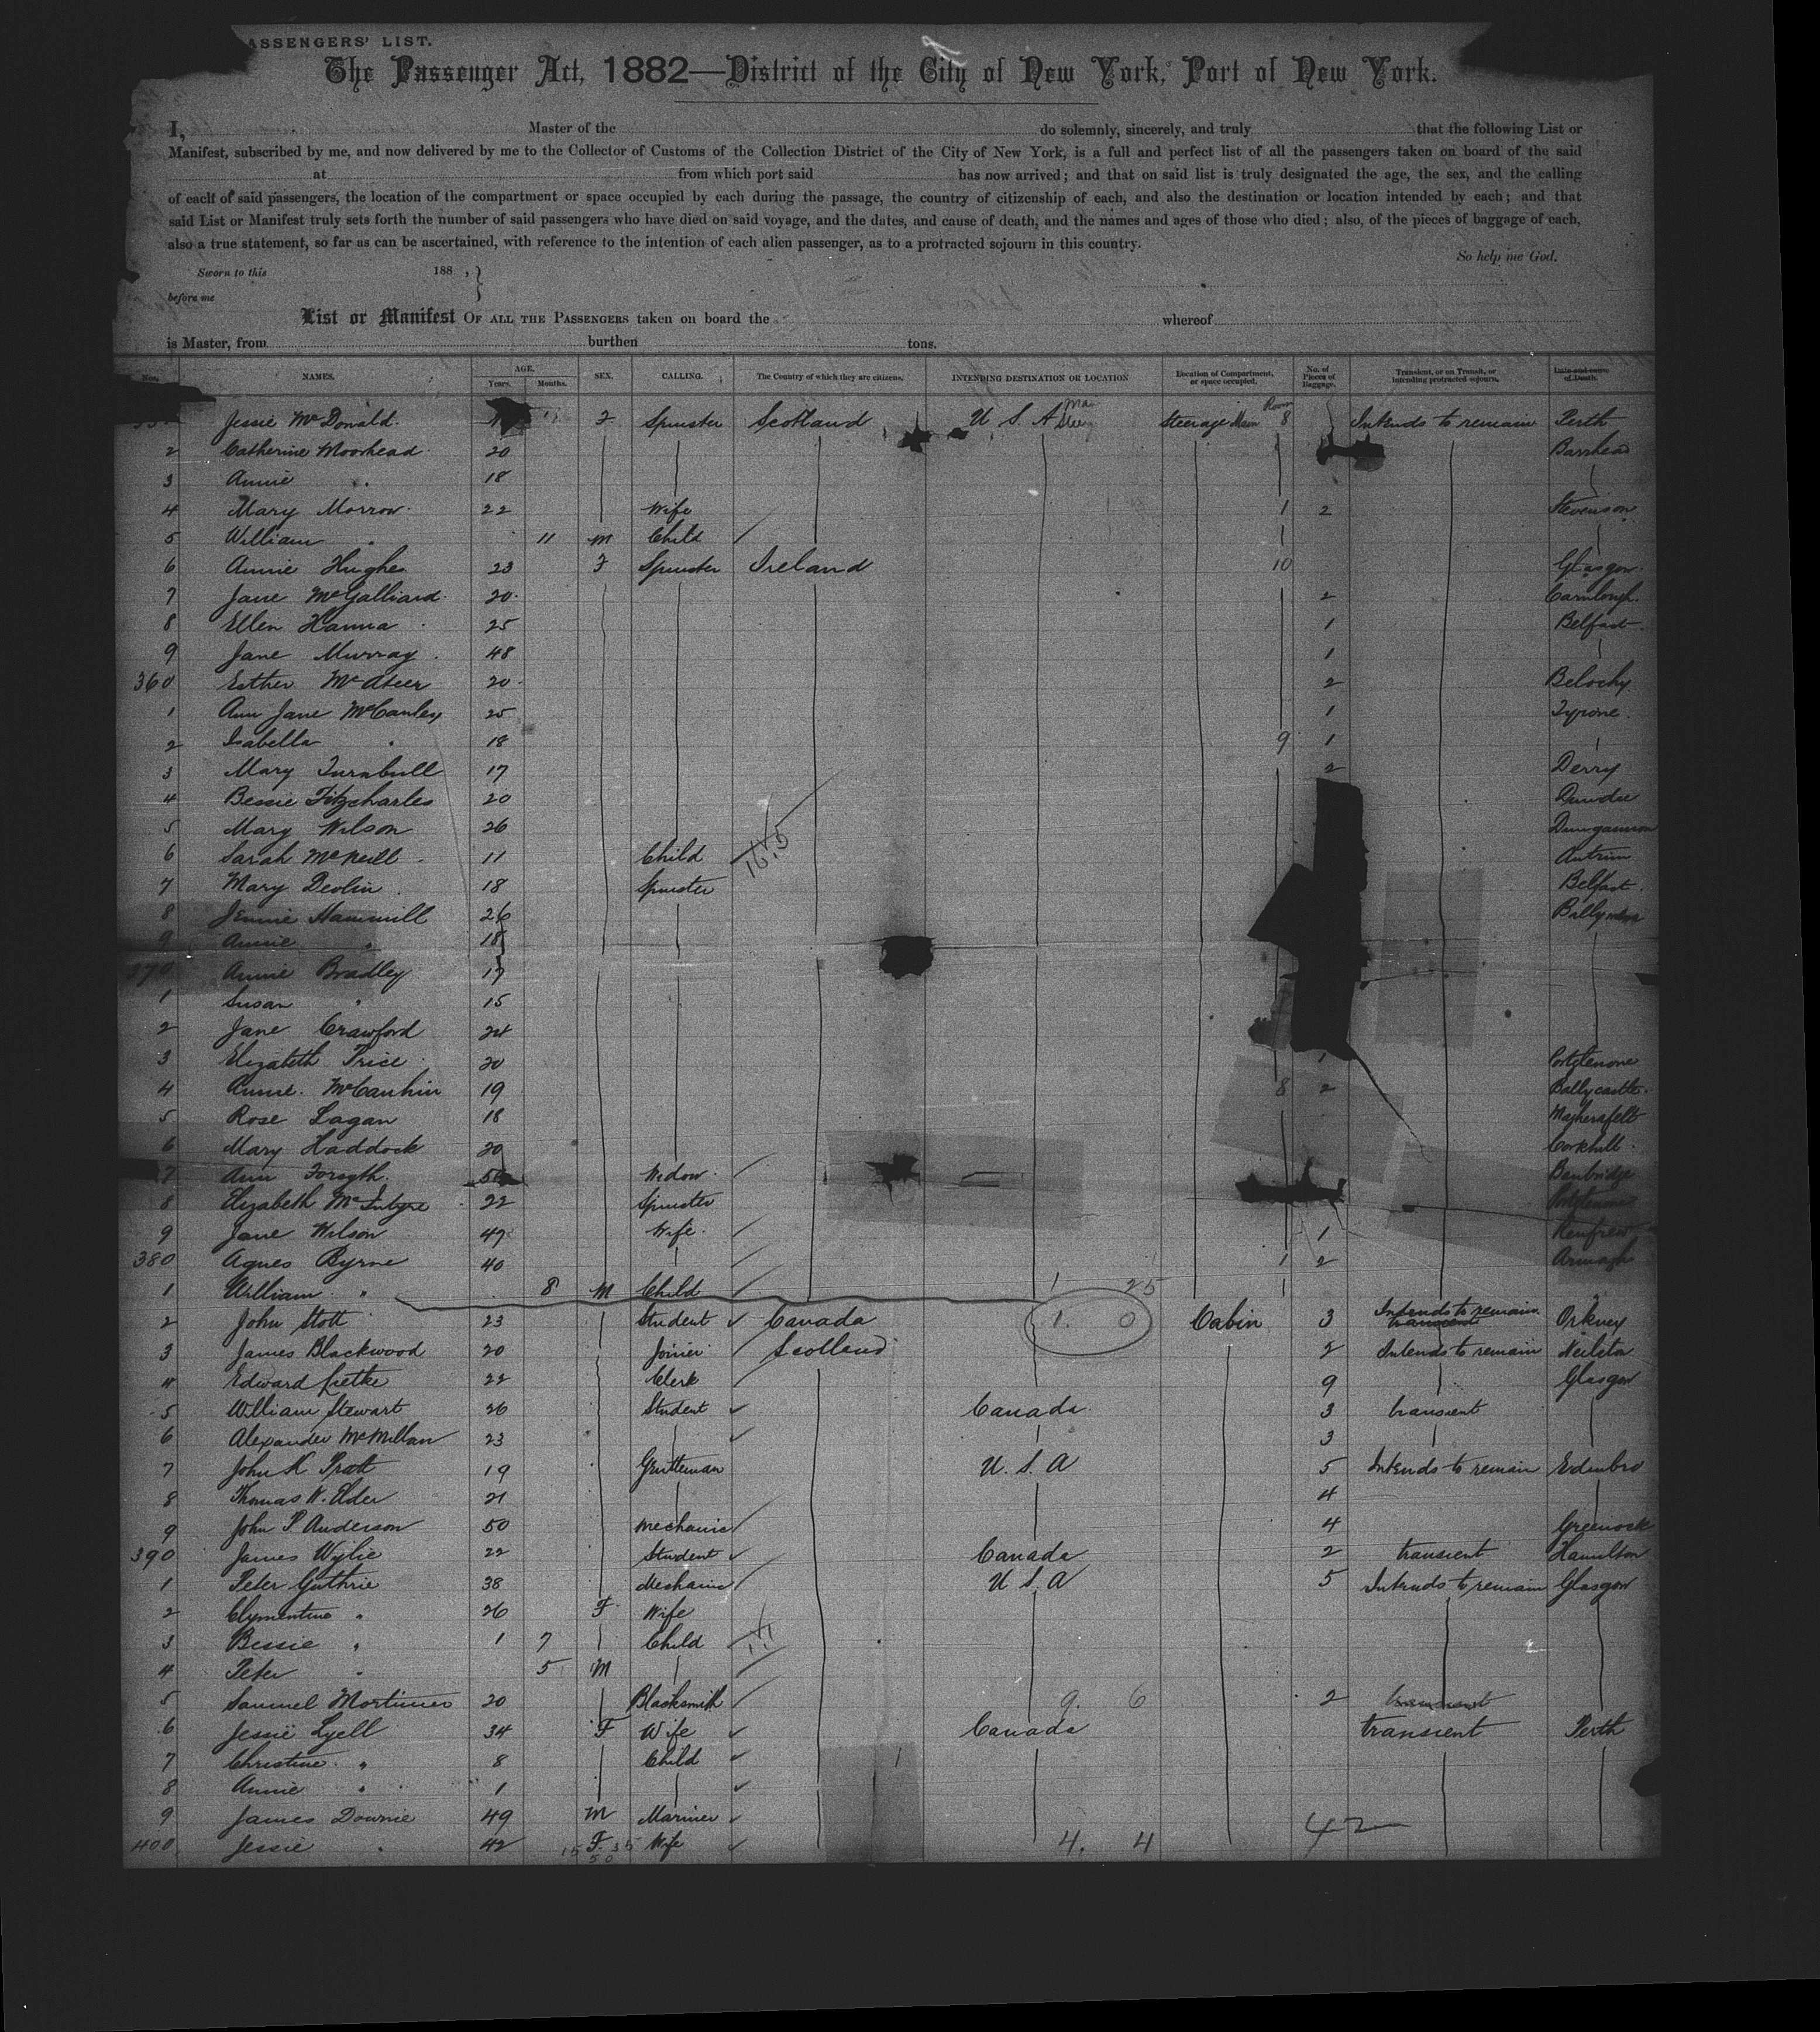 PASSENGERS' LIST.
The Passenger Act, 1882—District of the City of New York, Port of New York.
I, Master of the do solemnly, sincerely, and truly that the following List or
Manifest, subscribed by me, and now delivered by me to the Collector of Customs of the Collection District of the City of New York, is a full and perfect list of all the passengers taken on board of the said
at from which port said has now arrived; and that on said list is truly designated the age, the sex, and the calling
of each of said passengers, the location of the compartment or space occupied by each during the passage, the country of citizenship of each, and also the destination or location intended by each; and that
said List or Manifest truly sets forth the number of said passengers who have died on said voyage, and the dates, and cause of death, and the names and ages of those who died; also, of the pieces of baggage of each,
also a true statement, so far as can be ascertained, with reference to the intention of each alien passenger, as to a protracted sojourn in this country.
So help me God.
Sworn to this 188 , }
before me
List or Manifest OF ALL THE PASSENGERS taken on board the whereof
is Master, from burthen tons.
Nos. NAMES. AGE. Years. Months. SEX. CALLING. The Country of which they are citizens. INTENDING DESTINATION OR LOCATION Location of Compartment, or space occupied. No. of Pieces of Baggage. Transient, or on Transit, or intending protracted sojourn. Date and cause of Death.
Jessie McDonald Spinster Scotland U. S. A Steerage Room 8 Intends to remain Perth
2 Catherine Moorhead 20 Barrhead
3 Annie " 18
4 Mary Morrow 22 Wife 1 2 Stevenson
5 William " 11 M Child 1
6 Annie Hughes 23 F Spinster Ireland 10 Glasgow
7 Jane McGalliard 20 2 Carnlough
8 Ellen Hanna 25 1 Belfast
9 Jane Murray 48 1
360 Esther McAteer 20 2
1 Ann Jane McCauley 25 1 Tyrone
2 Isabella " 18 9 1
3 Mary Turnbull 17 2 Derry
4 Bessie Fitzcharles 20 Dundee
5 Mary Wilson 26 Dungannon
6 Sarah McNeill 11 Child Antrim
7 Mary Devlin 18 Spinster Belfast
8 Jennie Hammill 26 Ballymena
9 Annie " 18
370 Annie Bradley 17
1 Susan " 15
2 Jane Crawford 24
3 Elizabeth Price 20 1 Portglenone
4 Annie McCaughin 19 8 2 Ballycastle
5 Rose Lagan 18 Magherafelt
6 Mary Haddock 20 Corkhill
7 Ann Forsyth Widow Banbridge
8 Elizabeth McIntyre 22 Spinster Portglenone
9 Jane Wilson 47 Wife 1 Renfrew
380 Agnes Byrne 40 1 2 Armagh
1 William " 8 M Child 1 1 25
2 John Stott 23 Student Canada 1. 0 Cabin 3 Intends to remain transient Orkney
3 James Blackwood 20 Joiner Scotland 2 Intends to remain Neilston
4 Edward 22 Clerk 9 Glasgow
5 William Stewart 26 Student Canada 3 transient
6 Alexander McMillan 23 3
7 John K Pratt 19 Gentleman U. S. A 5 Intends to remain Edinbro
8 Thomas W. Elder 21 4
9 John P Anderson 50 Mechanic 4 Greenock
390 James Wylie 22 Student Canada 2 transient Hamilton
1 Peter Guthrie 38 Mechanic U. S. A 5 Intends to remain Glasgow
2 Clymentine " 26 F Wife
3 Bessie " 1 7 Child
4 Peter " 5 M
5 Samuel Mortimer 20 Blacksmith 9. 6 2 transient
6 Jessie Lyell 34 F Wife Canada transient Perth
7 Christine " 8 Child
8 Annie " 1
9 James Downie 49 M Mariner
400 Jessie " 42 F Wife 4. 4 42